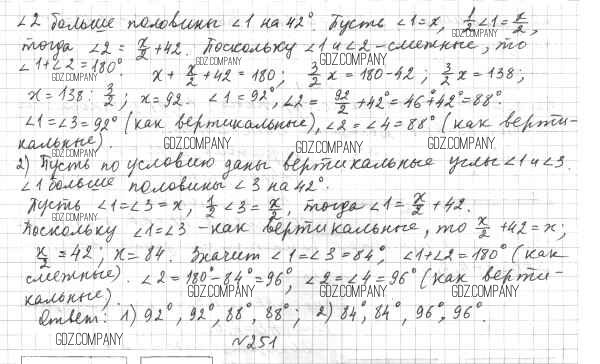 ∠2 больше половины ∠1 на 42°. Пусть ∠1=x, 1/2∠1=x/2,
GDZ.COMPANY
тогда ∠2 = x/2+42. Поскольку ∠1 и ∠2 - смежные, то
GDZ.COMPANY GDZ.COMPANY
∠1+∠2=180°. x + x/2 + 42 = 180; 3/2 x = 180-42; 3/2 x = 138;
GDZ.COMPANY
x = 138 : 3/2; x = 92. ∠1 = 92°, ∠2 = 92/2 + 42° = 46°+42°=88°.
GDZ.COMPANY
∠1=∠3=92° (как вертикальные), ∠2=∠4=88° (как верти-
кальные).
GDZ.COMPANY GDZ.COMPANY GDZ.COMPANY GDZ.COMPANY
2) Пусть по условию даны вертикальные углы ∠1 и ∠3.
∠1 больше половины ∠3 на 42°.
Пусть ∠1=∠3=x, 1/2∠3=x/2, тогда ∠1=x/2+42.
GDZ.COMPANY
Поскольку ∠1=∠3 - как вертикальные, то x/2+42=x;
x/2=42; x=84. Значит ∠1=∠3=84°, ∠1+∠2=180° (как
смежные). ∠2=180°-84°=96°, ∠2=∠4=96° (как верти-
кальные).
GDZ.COMPANY GDZ.COMPANY GDZ.COMPANY GDZ.COMPANY
Ответ: 1) 92°, 92°, 88°, 88°; 2) 84°, 84°, 96°, 96°.
GDZ.COMPANY
№251